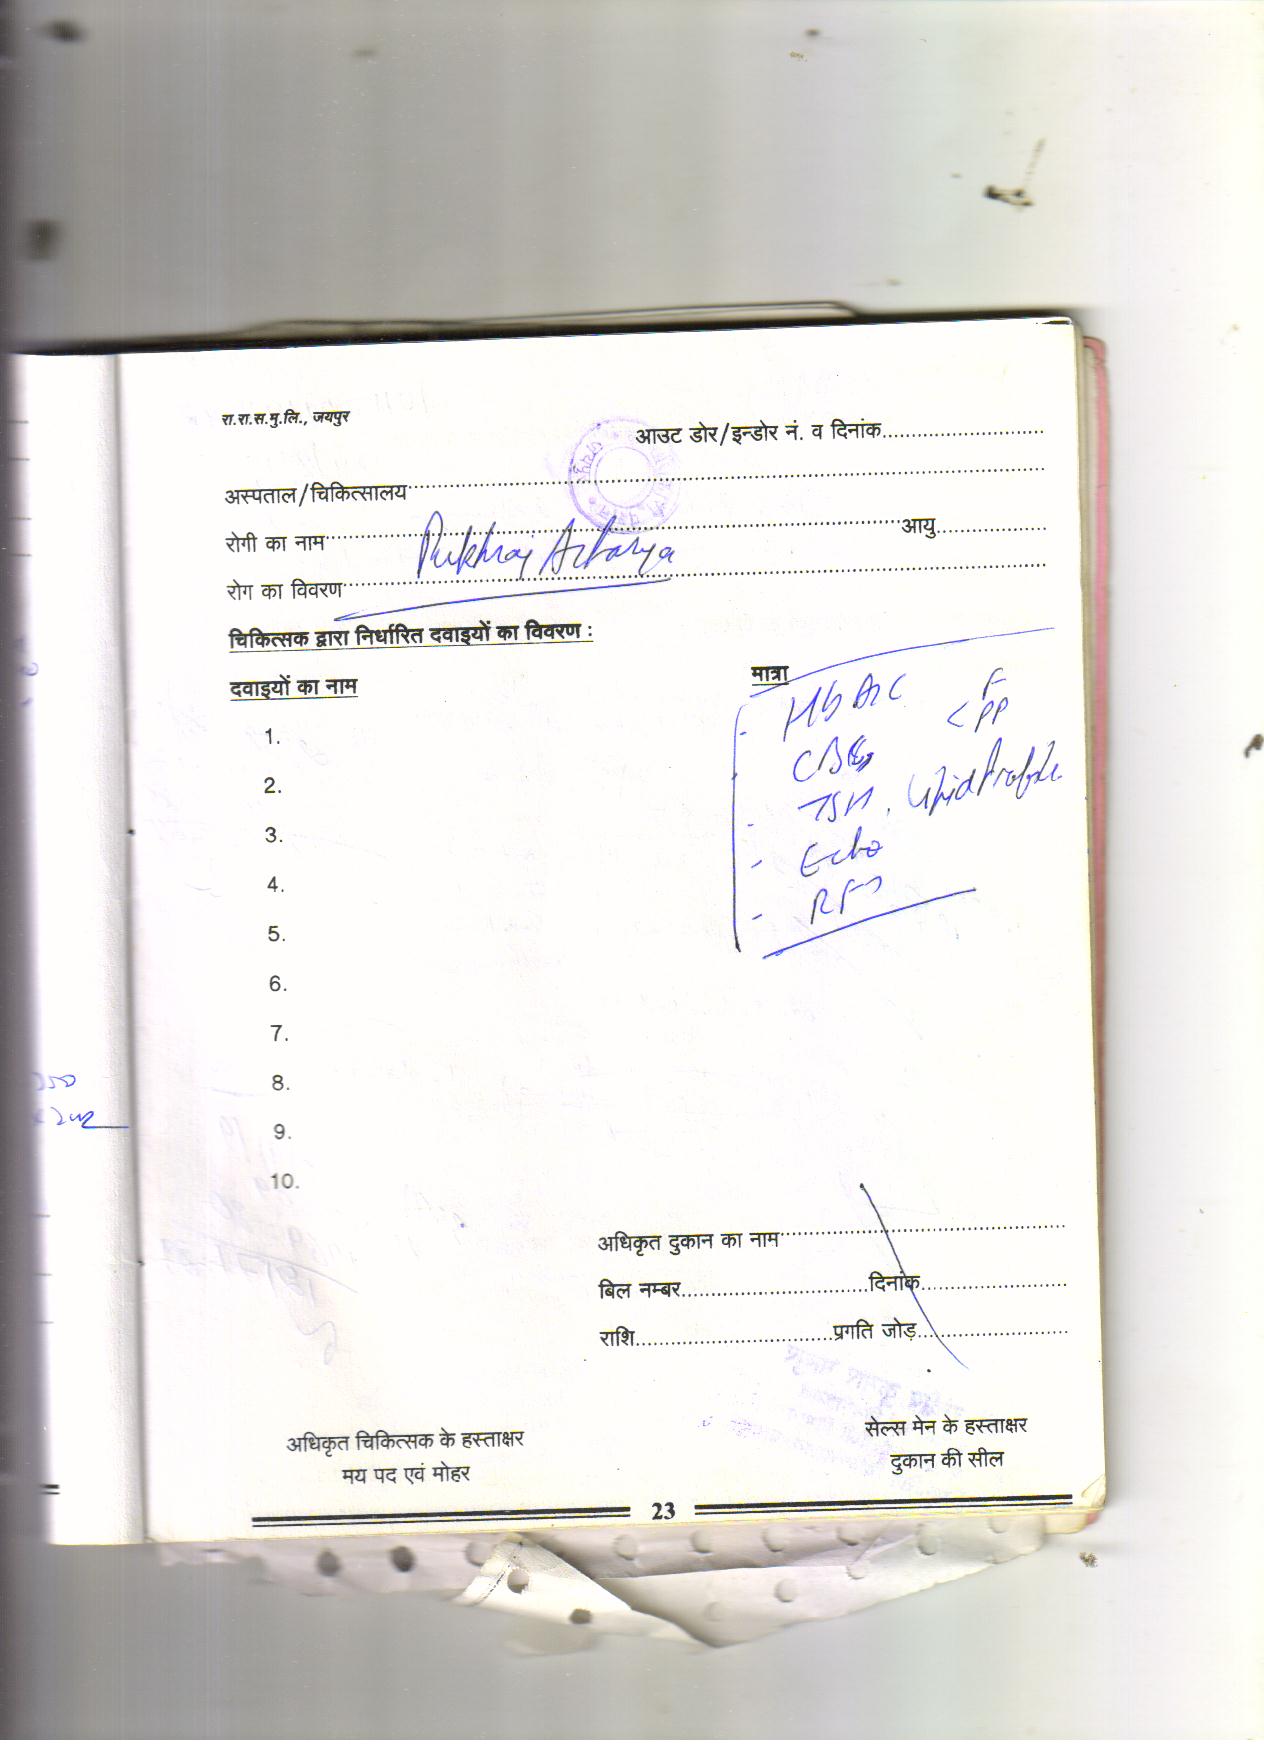 रा.रा.स.मु.लि., जयपुर
आउट डोर/इन्डोर नं. व दिनांक
अस्पताल/चिकित्सालय
रोगी का नाम Pukhraj Acharya आयु
रोग का विवरण
चिकित्सक द्वारा निर्धारित दवाइयों का विवरण :
दवाइयों का नाम मात्रा
- HbA1C F
< PP
1.
CBC
2.
- TSH, Lipid Profile
3.
- Echo
4.
- RFT
5.
6.
7.
8.
9.
10.
अधिकृत दुकान का नाम
बिल नम्बर दिनांक
राशि प्रगति जोड़
अधिकृत चिकित्सक के हस्ताक्षर सेल्स मेन के हस्ताक्षर
मय पद एवं मोहर दुकान की सील
23